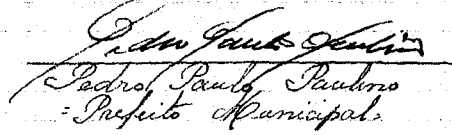 Pedro Paulo Paulino
Pedro Paulo Paulino
=Prefeito Municipal=